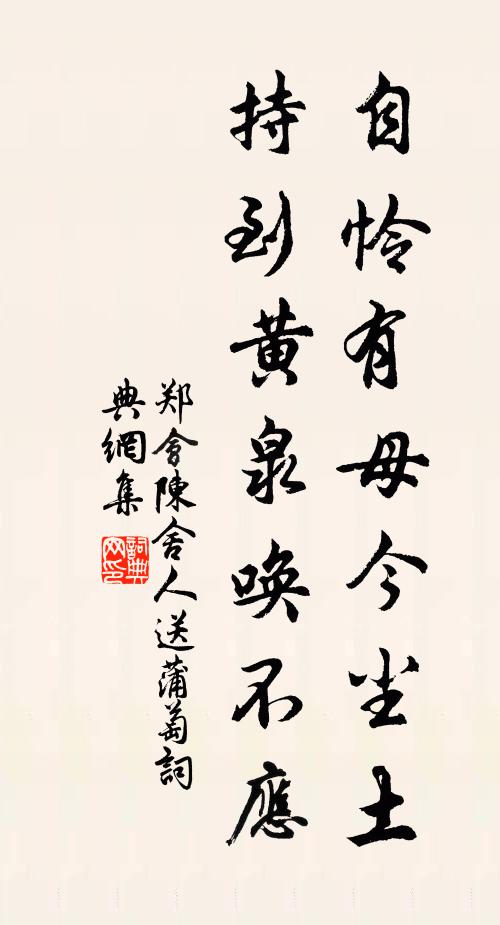 自怜有母今尘土
持到黄泉唤不應
郑會陳舍人送蒲萄詞
典網集
詞典網印